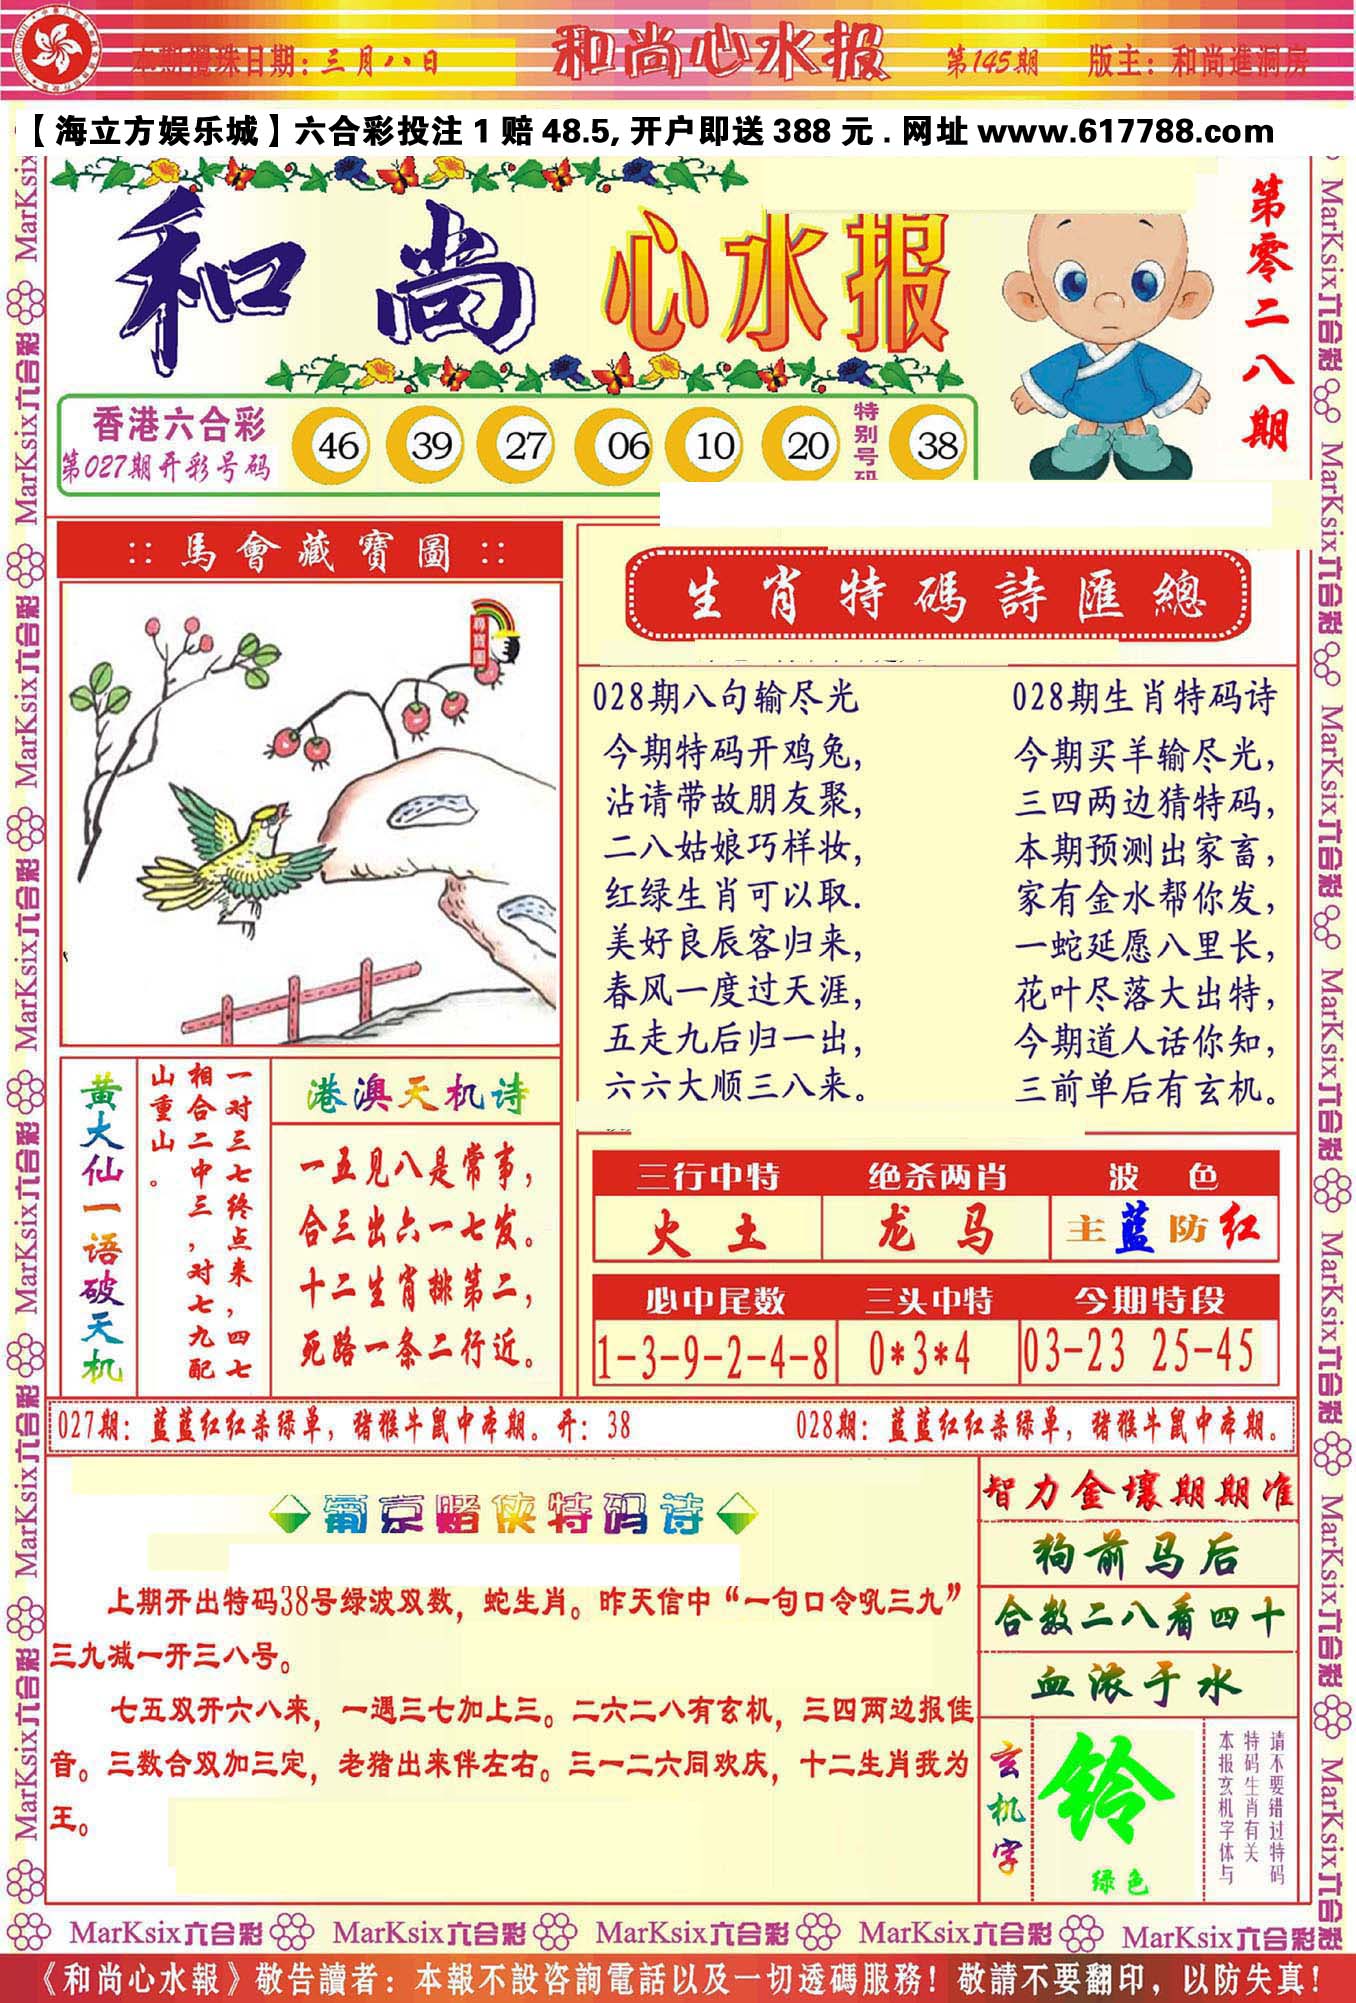 本期攪珠日期:三月八日
和尚心水报
第145期
版主:和尚進洞房
【海立方娱乐城】六合彩投注 1 赔 48.5, 开户即送 388 元 . 网址 www.617788.com
和尚心水报
第零二八期
香港六合彩
第027期开彩号码
46 39 27 06 10 20
特别号码
38
::馬會藏寶圖::
尋寶圖
生肖特碼詩匯總
028期八句输尽光
今期特码开鸡兔,
沾请带故朋友聚,
二八姑娘巧样妆,
红绿生肖可以取.
美好良辰客归来,
春风一度过天涯,
五走九后归一出,
六六大顺三八来。
028期生肖特码诗
今期买羊输尽光,
三四两边猜特码,
本期预测出家畜,
家有金水帮你发,
一蛇延愿八里长,
花叶尽落大出特,
今期道人话你知,
三前单后有玄机。
黄大仙一语破天机
一对三七终点来,四七
相合二中三,对七九配
山重山。
港澳天机诗
一五见八是常事,
合三出六一七发。
十二生肖排第二,
死路一条二行近。
三行中特 绝杀两肖 波 色
火 土 龙 马 主蓝防红
必中尾数 三头中特 今期特段
1-3-9-2-4-8 0*3*4 03-23 25-45
027期: 蓝蓝红红杀绿单, 猪猴牛鼠中本期。开: 38
028期: 蓝蓝红红杀绿单, 猪猴牛鼠中本期。
葡京赌侠特码诗
上期开出特码38号绿波双数, 蛇生肖。昨天信中“一句口令吼三九”
三九减一开三八号。
七五双开六八来, 一遇三七加上三。二六二八有玄机, 三四两边报佳
音。三数合双加三定, 老猪出来伴左右。三一二六同欢庆, 十二生肖我为
王。
智力金壤期期准
狗前马后
合数二八看四十
血浓于水
玄机字
铃
绿色
请不要错过特码
特码生肖有关
本报玄机字体与
MarKsix六合彩 MarKsix六合彩 MarKsix六合彩 MarKsix六合彩 MarKsix六合彩
《和尚心水報》敬告讀者: 本報不設咨詢電話以及一切透碼服務! 敬請不要翻印, 以防失真!